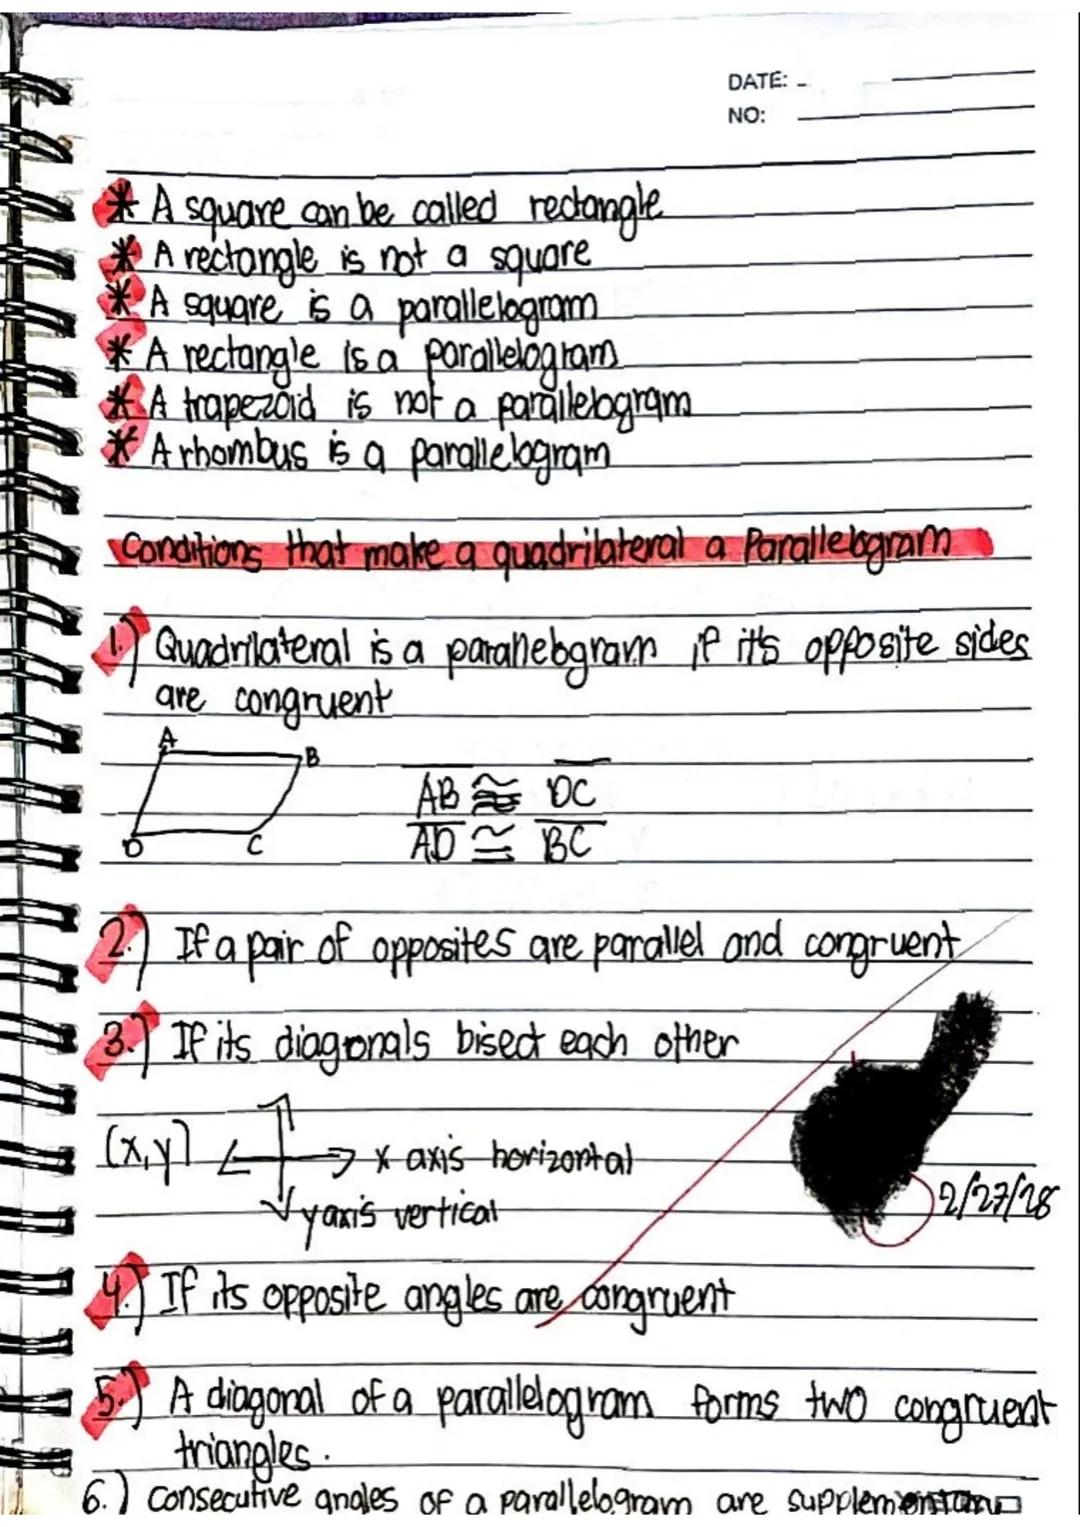 DATE:
NO:
* A square can be called rectangle
* A rectangle is not a square
* A square is a parallelogram
* A rectangle is a parallelogram
* A trapezoid is not a parallelogram
* A rhombus is a parallelogram
Conditions that make a quadrilateral a Parallelogram
1.) Quadrilateral is a parallelogram if it's opposite sides
are congruent
A
B
D
C
AB ≅ DC
AD ≅ BC
2.) If a pair of opposites are parallel and congruent
3.) If its diagonals bisect each other
(x,y)
x axis horizontal
y axis vertical
2/27/28
4.) If its opposite angles are congruent
5.) A diagonal of a parallelogram forms two congruent
triangles.
6.) consecutive angles of a parallelogram are supplementary